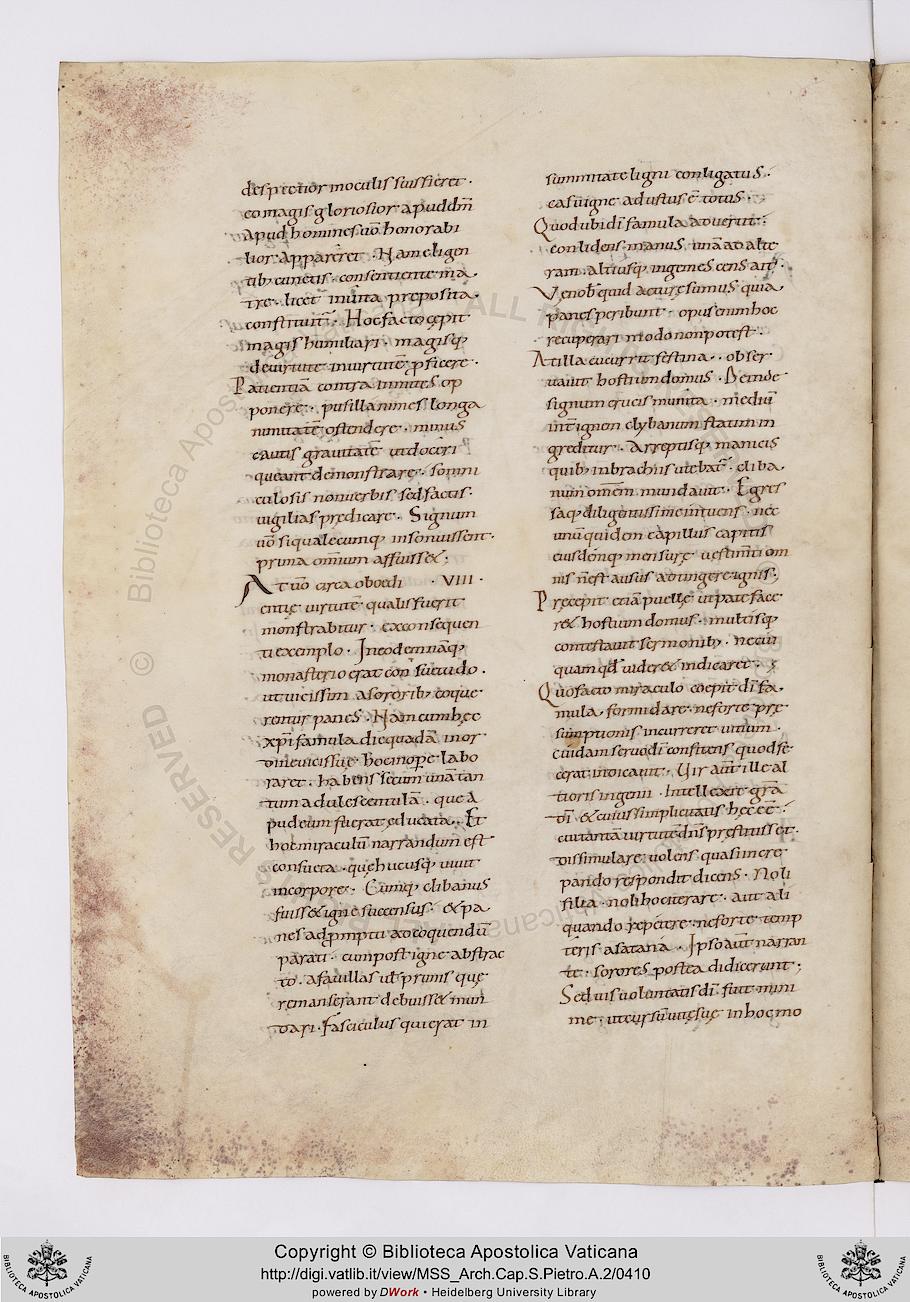 despectior inoculis suis fieret ·
eo magis gloriosior apud dm̄
apud homines uō honorabi
lior appareret · Nam eligen
tib; cunctis · consentiente ma
tre · licet inuita preposita ·
constituit̄ · Hoc facto cępit
magis humiliari · magisq;
de uirtute in uirtutē proficere ·
Patientiam contra inmites op
ponere · pusillanimes longa
nimitatē ostendere · minus
cautis grauitatē ut doceri
queant demonstrare · somni
culosis non uerbis sed factis ·
uigilias prędicare · Signum
uō si qualecumq; insonuisset ·
prima omnium affuisse ·
At uō circa oboedi · VIII ·
entię uirtutē qualis fuerit
monstrabitur · ex consequen
ti exemplo · In eodem naq;
monasterio erat consuetudo ·
ut uicissim a sororib; coque
rentur panes · Nam cum hęc
xp̄i famula die quadā in or
dine uicis suę · hoc in opere labo
raret · habens secum unā tan
tum adulescentulā · que a
pud eum fuerat educata · Et
hoc miraculū narrandum est
consueta · quę hucusq; uiuit
in corpore · Cumq; clibanus
fuiss& igne succensus · & pa
nes ad promptu ad coquendū
parati · cum post igne abstrac
to · a fauillas uel prunis que
remanserant debuiss& mun
dari · Fasciculus qui erat in
summitate ligni conligatus ·
casu igne adustus ē totus ·
Quod ubi di famula aduertit ·
conlidens manus unā ad alte
ram · altiusq; ingemescens ait ·
Ve nob̄ quid acturę sumus quia
panes peribunt · opus enim hoc
recuperari modo non potest ·
At illa cucurrit festina · obser
uauit hostium domus · Deinde
signum crucis munita · mediū
int̄ ignem clybanum statim in
greditur · Arreptisq; manicis
quib; in brachiis utebat̄ · cliba
num omēm mundauit · Egres
saq; diligentissime intuens · nec
unū quidem capillus capitis
eiusdemq; mensurę uestimti om
nis n̄ est ausus adtingere ignis ·
Precepit etiā puelle ut pateface
r& hostium domus · multisq;
contestauit sermonib; · ne cui
quam qd uider& indicaret ·
Quo facto miraculo coepit di fa
mula formidare · ne forte prę
sumptionis incurreret uitium ·
cuidam seruo di confitens quod ge
serat indicauit · Vir aut̄ ille al
tioris ingenii · Intellexit grā
di & cuius simplicitatis hęc ēē ·
cui tantā uirtutē dn̄s prestitisset ·
dissimulare uolens quasi incre
pando respondit dicens · Noli
filia · noli hoc iterare · aut ali
quando repetere · ne forte temp
teris a satana · Ipso aut̄ narran
te · sorores postea didicerunt ·
Sed uis uoluntatis di fuit mini
me · ut cursū uitę suę in hoc mo
Copyright © Biblioteca Apostolica Vaticana
http://digi.vatlib.it/view/MSS_Arch.Cap.S.Pietro.A.2/0410
powered by DWork • Heidelberg University Library